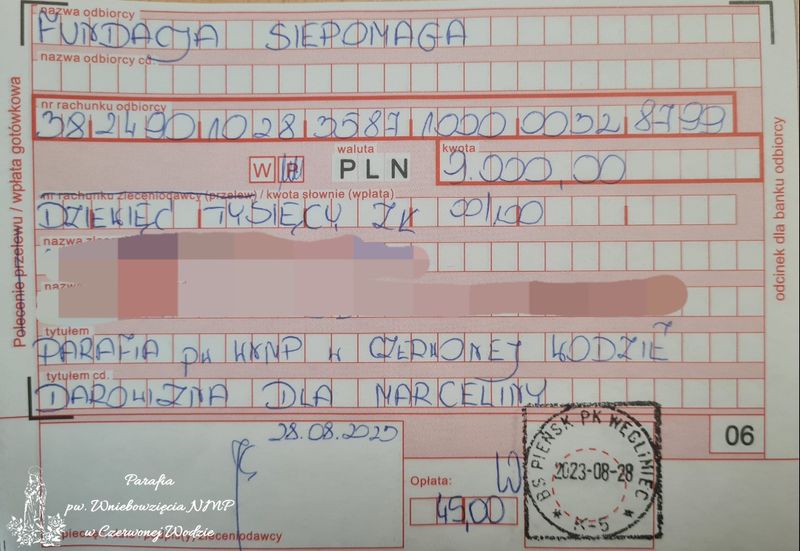 nazwa odbiorcy
FUNDACJA SIEPOMAGA
nazwa odbiorcy cd.
nr rachunku odbiorcy
38 2490 1028 3587 1000 0032 8799
W P waluta PLN kwota 9.000,00
nr rachunku zleceniodawcy (przelew) / kwota słownie (wpłata)
DZIEWIĘĆ TYSIĘCY ZŁ 00/100
nazwa
nazwa
tytułem
PARAFIA pw WNMP W CZERWONEJ WODZIE
tytułem cd.
DAROWIZNA DLA MARCELINY
28.08.2023
06
Opłata:
45,00
BS PIEŃSK PK WĘGLINIEC
2023-08-28
* K-5 *
Polecenie przelewu / wpłata gotówkowa
odcinek dla banku odbiorcy
Parafia
pw. Wniebowzięcia NMP
w Czerwonej Wodzie
zleceniodawcy